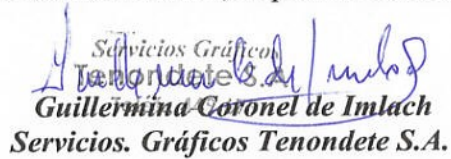 Servicios Gráficos
Tenondete S.A.
Guillermina Coronel de Imlach
Servicios. Gráficos Tenondete S.A.